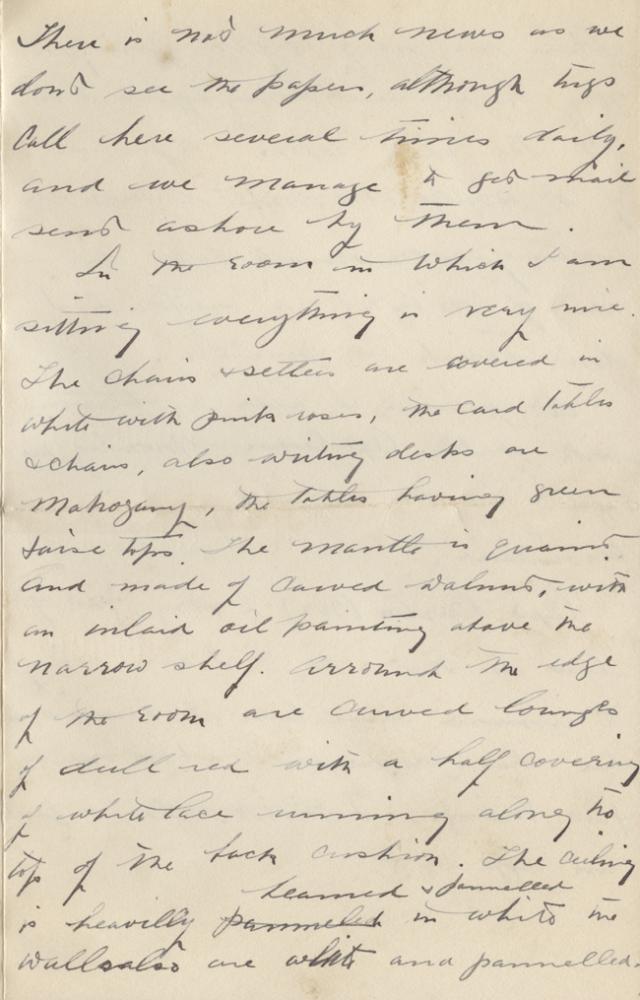 There is not much news as we
dont see the papers, although tugs
Call here several times daily,
and we manage to get mail
sent ashore by them.
In the room in which I am
sitting everything is very nice.
The chairs & settees are covered in
white with pink roses, the card tables
& chairs, also writing desks are
Mahogany, the tables having green
baise tops. The mantle is quaint
and made of carved walnut, with
an inlaid oil painting above the
narrow shelf. Arround the edge
of the room are curved lounges
of dull red with a half covering
of white lace running along the
top of the back cushion. The ceiling
beamed & pannelled
is heavilly pannelled in white the
walls also are white and pannelled.